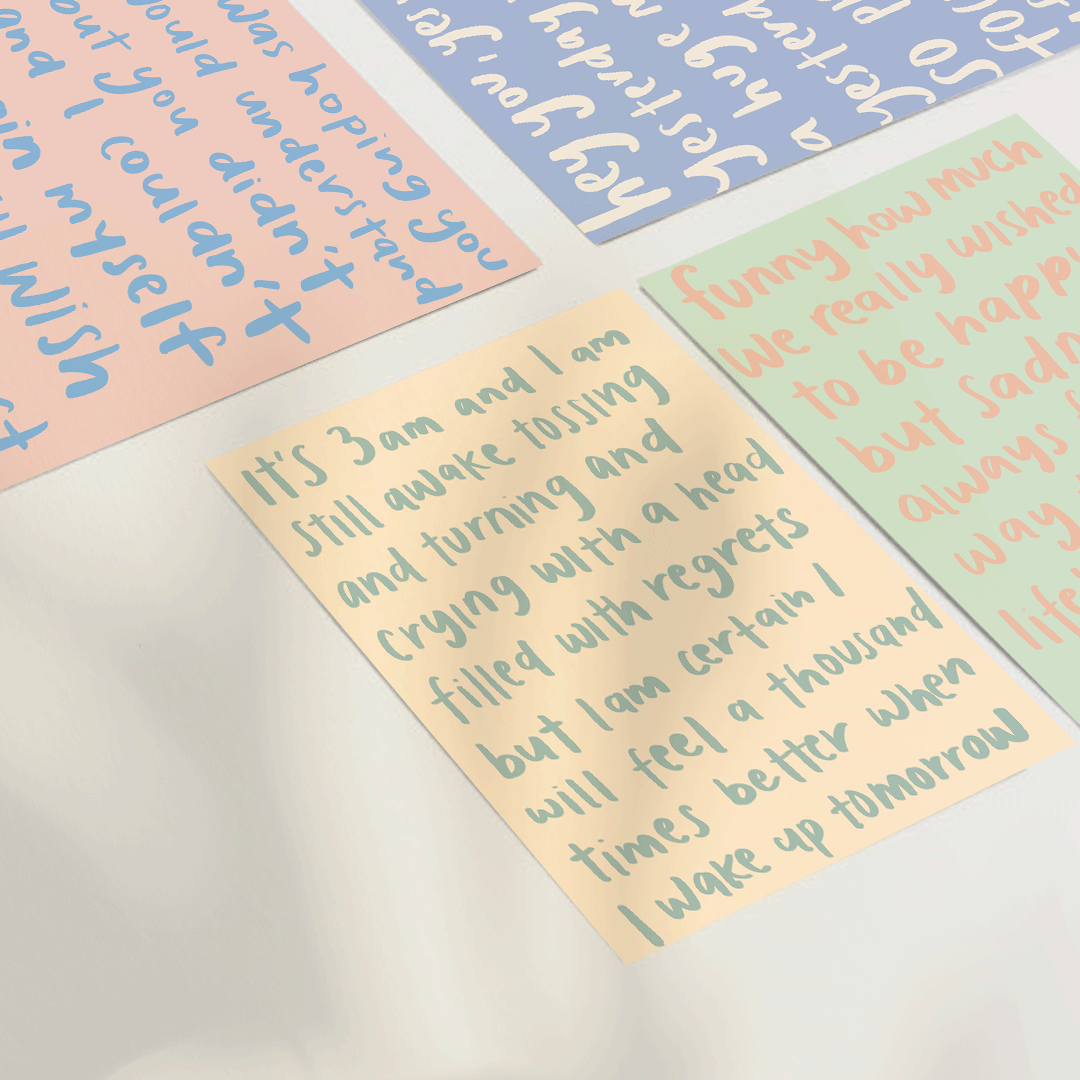 was hoping you
would understand
but you didn't
and I couldn't
myself
wish
hey you, yes,
yesterday
a huge
so
funny how much
we really wished
to be happy
but sadn
always
way
life
It's 3am and I am
still awake tossing
and turning and
crying with a head
filled with regrets
but I am certain I
will feel a thousand
times better when
I wake up tomorrow